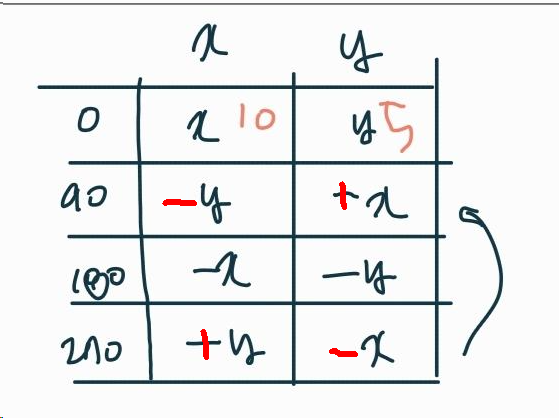 x y
0 x 10 y 5
90 -y +x
180 -x -y
270 +y -x